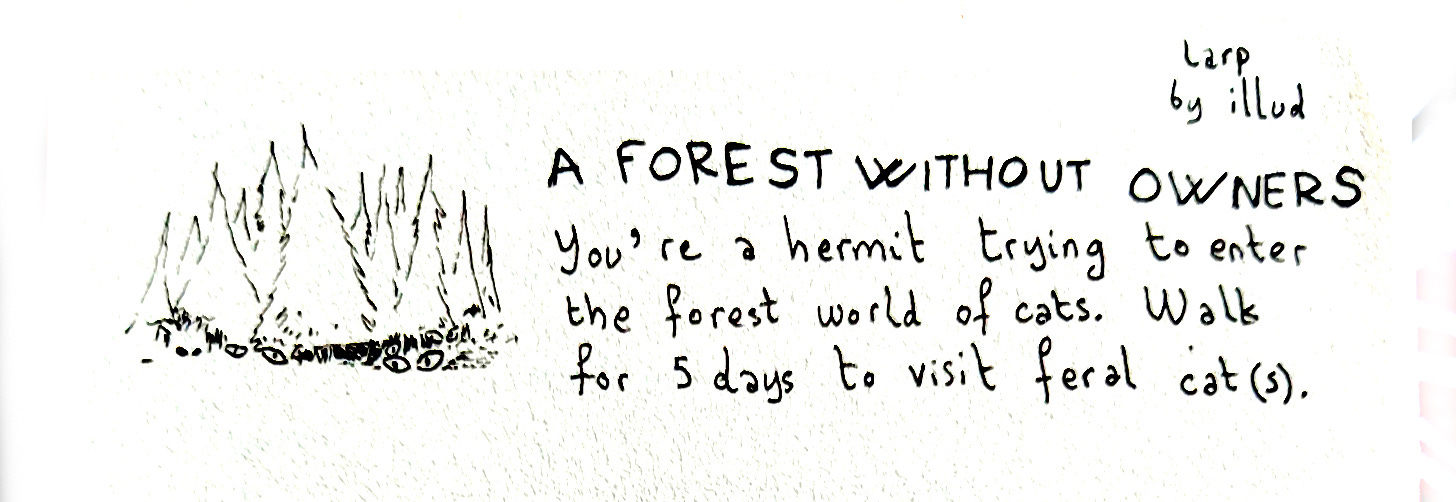 Larp
by illud
A FOREST WITHOUT OWNERS
You're a hermit trying to enter
the forest world of cats. Walk
for 5 days to visit feral cat(s).